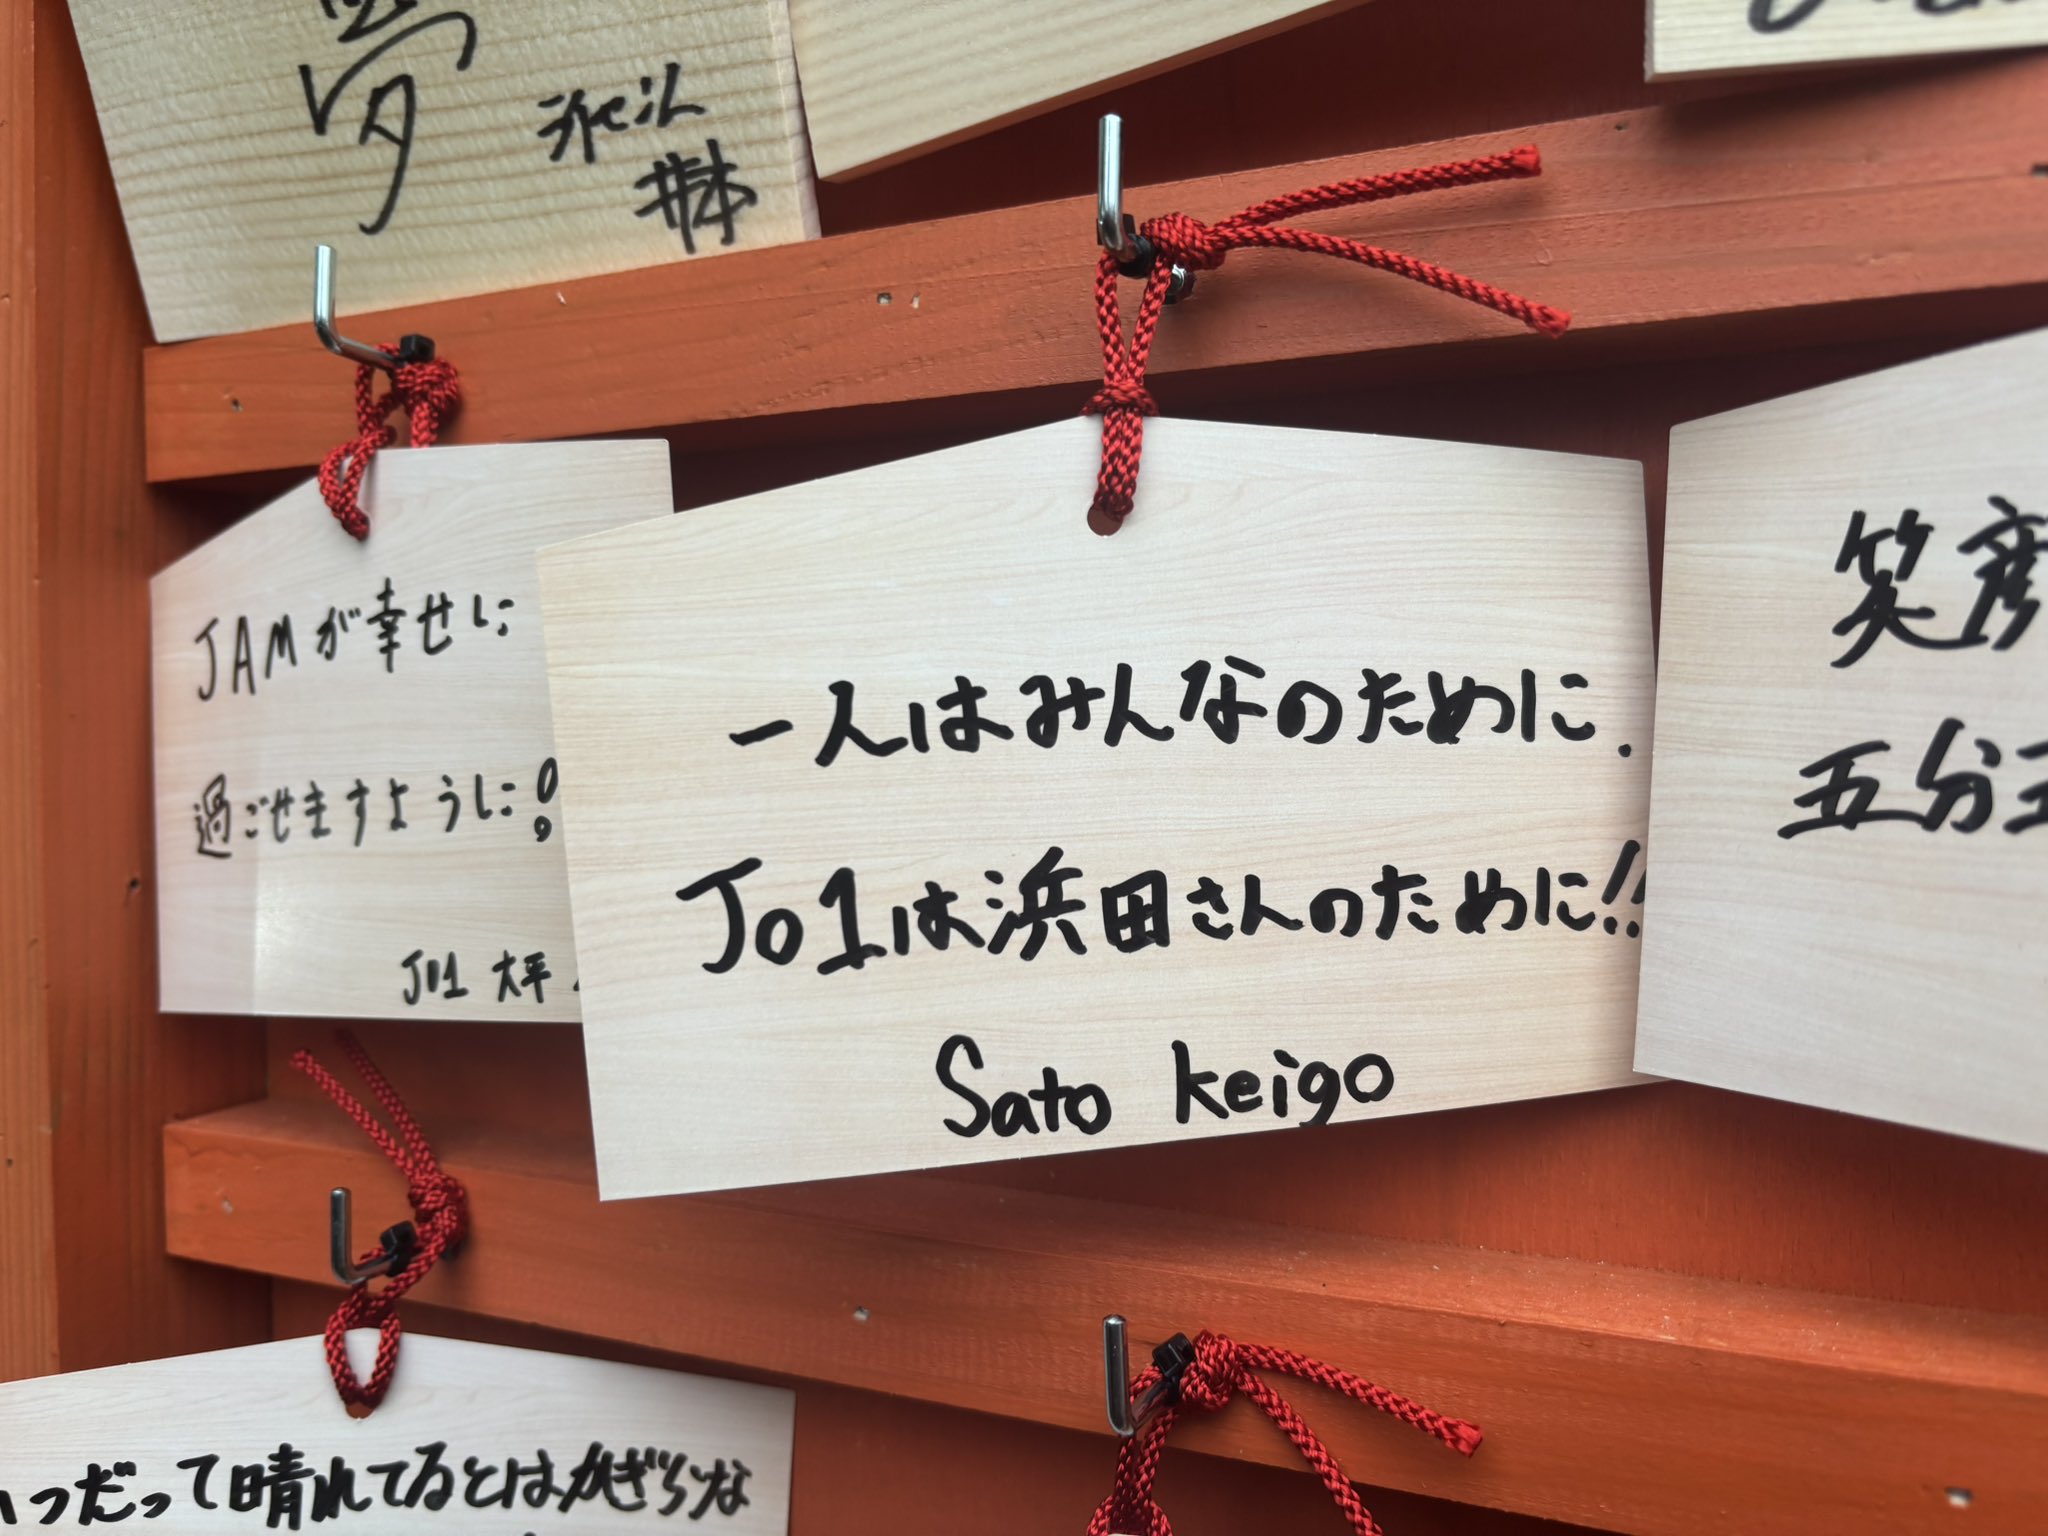 夢
JAMが幸せに
過ごせますように!
JO1 大平
一人はみんなのために.
JO1は浜田さんのために!!
Sato Keigo
笑彦
五分
いつだって晴れてるとはかぎらな